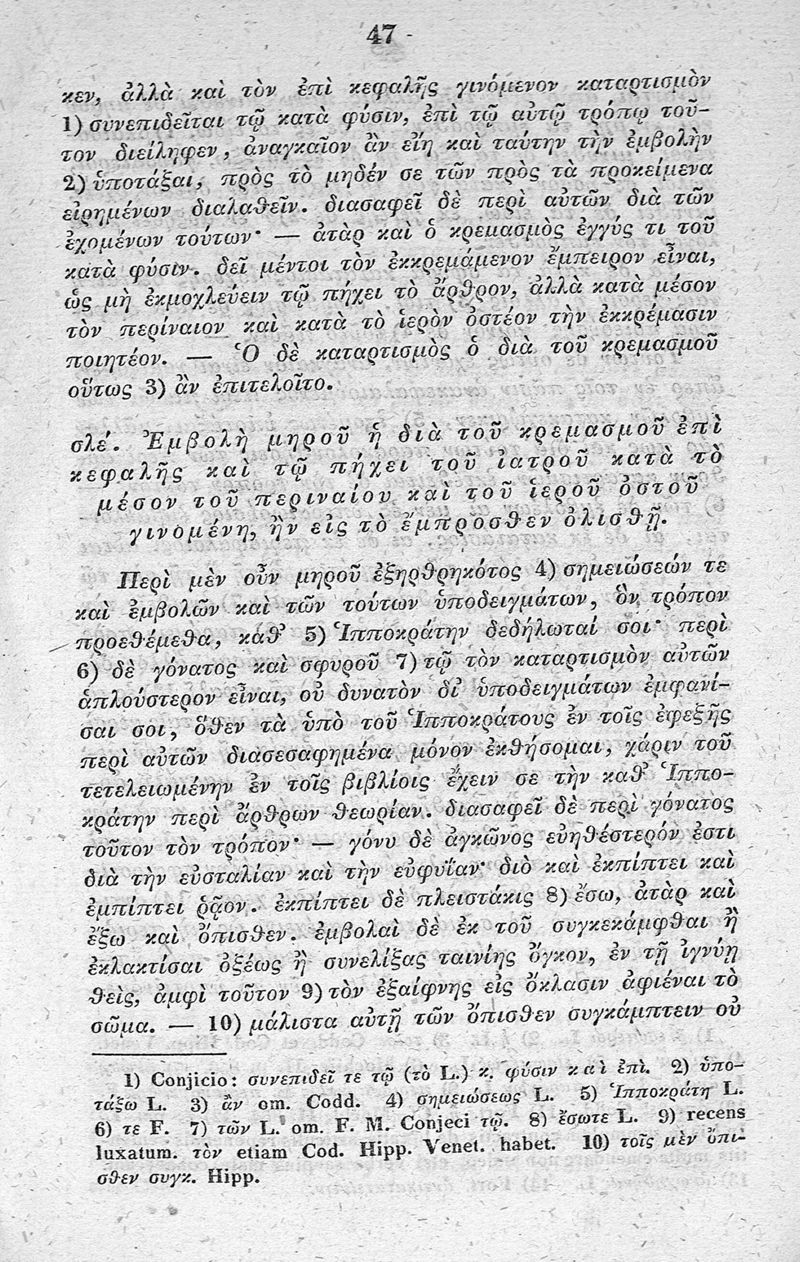 47
κεν, ἀλλὰ καὶ τὸν ἐπὶ κεφαλῆς γινόμενον καταρτισμὸν
1) συνεπιδεῖται τῷ κατὰ φύσιν, ἐπὶ τῷ αὐτῷ τρόπῳ τοῦ-
τον διείληφεν, ἀναγκαῖον ἂν εἴη καὶ ταύτην τὴν ἐμβολὴν
2) ὑποτάξαι, πρὸς τὸ μηδέν σε τῶν πρὸς τὰ προκείμενα
εἰρημένων διαλαθεῖν. διασαφεῖ δὲ περὶ αὐτῶν διὰ τῶν
ἐχομένων τούτων· — ἀτὰρ καὶ ὁ κρεμασμὸς ἐγγύς τι τοῦ
κατὰ φύσιν. δεῖ μέντοι τὸν ἐκκρεμάμενον ἔμπειρον εἶναι,
ὡς μὴ ἐκμοχλεύειν τῷ πήχει τὸ ἄρθρον, ἀλλὰ κατὰ μέσον
τὸν περίναιον καὶ κατὰ τὸ ἱερὸν ὀστέον τὴν ἐκκρέμασιν
ποιητέον. — Ὁ δὲ καταρτισμὸς ὁ διὰ τοῦ κρεμασμοῦ
οὕτως 3) ἂν ἐπιτελοῖτο.
σλέ. Ἐμβολὴ μηροῦ ἡ διὰ τοῦ κρεμασμοῦ ἐπὶ
κεφαλῆς καὶ τῷ πήχει τοῦ ἰατροῦ κατὰ τὸ
μέσον τοῦ περιναίου καὶ τοῦ ἱεροῦ ὀστοῦ
γινομένη, ἢν εἰς τὸ ἔμπροσθεν ὀλισθῇ.
Περὶ μὲν οὖν μηροῦ ἐξηρθρηκότος 4) σημειώσεών τε
καὶ ἐμβολῶν καὶ τῶν τούτων ὑποδειγμάτων, ὃν τρόπον
προεθέμεθα, καθ' 5) Ἱπποκράτην δεδήλωταί σοι· περὶ
6) δὲ γόνατος καὶ σφυροῦ 7) τῷ τὸν καταρτισμὸν αὐτῶν
ἁπλούστερον εἶναι, οὐ δυνατὸν δἰ ὑποδειγμάτων ἐμφανί-
σαι σοι, ὅθεν τὰ ὑπὸ τοῦ Ἱπποκράτους ἐν τοῖς ἐφεξῆς
περὶ αὐτῶν διασεσαφημένα μόνον ἐκθήσομαι, χάριν τοῦ
τετελειωμένην ἐν τοῖς βιβλίοις ἔχειν σε τὴν καθ' Ἱππο-
κράτην περὶ ἄρθρων θεωρίαν. διασαφεῖ δὲ περὶ γόνατος
τοῦτον τὸν τρόπον· — γόνυ δὲ ἀγκῶνος εὐηθέστερόν ἐστι
διὰ τὴν εὐσταλίαν καὶ τὴν εὐφυΐαν· διὸ καὶ ἐκπίπτει καὶ
ἐμπίπτει ῥᾷον. ἐκπίπτει δὲ πλειστάκις 8) ἔσω, ἀτὰρ καὶ
ἔξω καὶ ὄπισθεν. ἐμβολαὶ δὲ ἐκ τοῦ συγκεκάμφθαι ἢ
ἐκλακτίσαι ὀξέως ἢ συνελίξας ταινίης ὄγκον, ἐν τῇ ἰγνύῃ
θεὶς, ἀμφὶ τοῦτον 9) τὸν ἐξαίφνης εἰς ὄκλασιν ἀφιέναι τὸ
σῶμα. — 10) μάλιστα αὐτῇ τῶν ὄπισθεν συγκάμπτειν οὐ
1) Conjicio: συνεπιδεῖ τε τῷ (τὸ L.) κ. φύσιν καὶ ἐπὶ. 2) ὑπο-
τάξω L. 3) ἂν om. Codd. 4) σημειώσεως L. 5) Ἱπποκράτη L.
6) τε F. 7) τῶν L. om. F. M. Conjeci τῷ. 8) ἔσωτε L. 9) recens
luxatum. τὸν etiam Cod. Hipp. Venet. habet. 10) τοῖς μὲν ὄπι-
σθεν συγκ. Hipp.